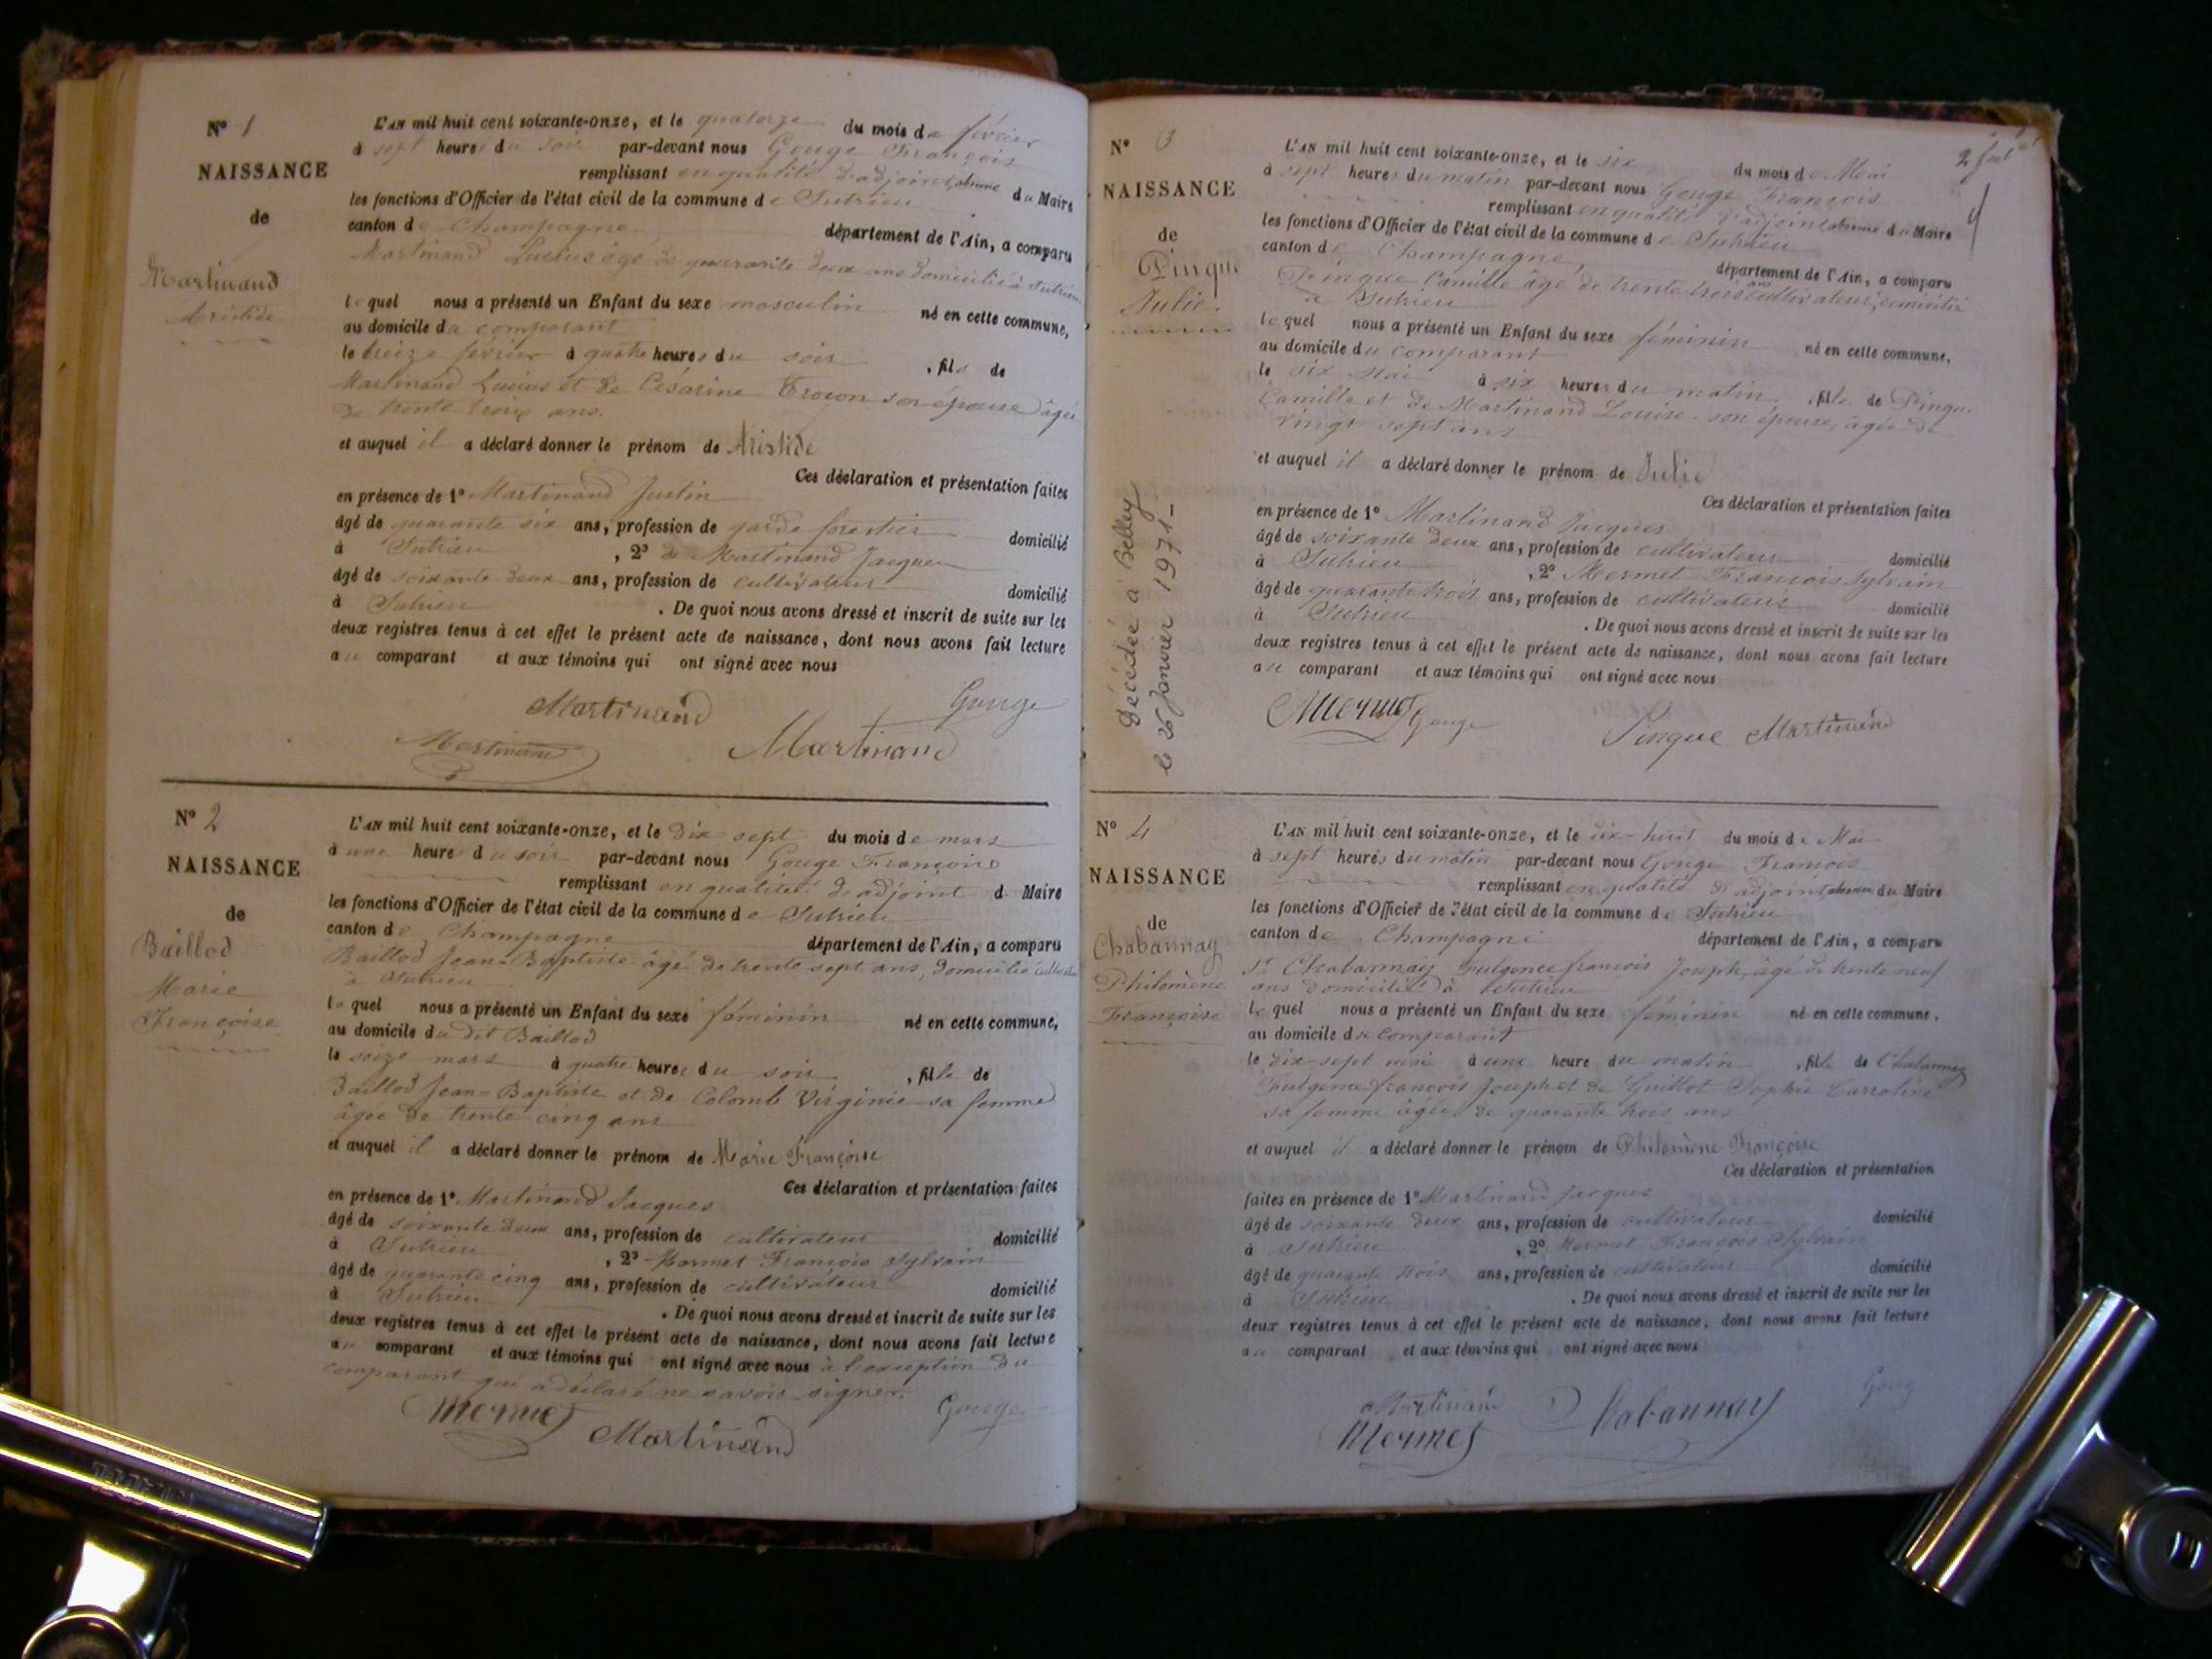 N° 1
NAISSANCE
de
Martinand
Aristide
L'AN mil huit cent soixante-onze, et le quatorze du mois de février
à sept heures du soir par-devant nous Gouge François
remplissant en qualité d'adjoint, absence du Maire
les fonctions d'Officier de l'état civil de la commune de Sutrieu
canton de Champagne département de l'Ain, a comparu
Martinand Lucius âgé de quarante deux ans domicilié à Sutrieu
lequel nous a présenté un Enfant du sexe masculin né en cette commune,
au domicile du comparant
le treize février à quatre heures du soir, fils de
Martinand Lucius et de Césarine son épouse âgée
de trente trois ans.
et auquel il a déclaré donner le prénom de Aristide
Ces déclaration et présentation faites
en présence de 1° Martinand Justin
âgé de quarante six ans, profession de garde forestier domicilié
à Sutrieu, 2° de Martinand Jacques
âgé de soixante deux ans, profession de cultivateur domicilié
à Sutrieu. De quoi nous avons dressé et inscrit de suite sur les
deux registres tenus à cet effet le présent acte de naissance, dont nous avons fait lecture
au comparant et aux témoins qui ont signé avec nous
Martinand Gouge
Martinand Martinand
N° 2
NAISSANCE
de
Baillod
Marie
Françoise
L'AN mil huit cent soixante-onze, et le dix-sept du mois de mars
à une heure du soir par-devant nous Gouge François
remplissant en qualité d'adjoint d Maire
les fonctions d'Officier de l'état civil de la commune de Sutrieu
canton de Champagne département de l'Ain, a comparu
Baillod Jean-Baptiste âgé de trente sept ans, domicilié
à Sutrieu
lequel nous a présenté un Enfant du sexe féminin né en cette commune,
au domicile du dit Baillod
le seize mars à quatre heures du soir, fille de
Baillod Jean-Baptiste et de Colomb Virginie sa femme
âgée de trente cinq ans
et auquel il a déclaré donner le prénom de Marie Françoise
Ces déclaration et présentation faites
en présence de 1° Martinand Jacques
âgé de soixante deux ans, profession de cultivateur domicilié
à Sutrieu, 2° Mermet François Sylvain
âgé de quarante cinq ans, profession de cultivateur domicilié
à Sutrieu. De quoi nous avons dressé et inscrit de suite sur les
deux registres tenus à cet effet le présent acte de naissance, dont nous avons fait lecture
au comparant et aux témoins qui ont signé avec nous à l'exception du
comparant qui a déclaré ne savoir signer.
Mermet Martinand Gouge
N° 3
NAISSANCE
de
Pinque
Julie.
Décédée à Belley
le 26 Janvier 1971-
L'AN mil huit cent soixante-onze, et le six du mois de Mai
à sept heures du matin par-devant nous Gouge François
remplissant en qualité d'adjoint, absence du Maire
les fonctions d'Officier de l'état civil de la commune de Sutrieu
canton de Champagne, département de l'Ain, a comparu
Pinque Camille âgé de trente trois ans cultivateur, domicilié
à Sutrieu
lequel nous a présenté un Enfant du sexe féminin né en cette commune,
au domicile du comparant
le six Mai à six heures du matin, fille de Pinque
Camille et de Martinand Louise son épouse, âgée de
vingt sept ans
et auquel il a déclaré donner le prénom de Julie
Ces déclaration et présentation faites
en présence de 1° Martinand Jacques
âgé de soixante deux ans, profession de cultivateur domicilié
à Sutrieu, 2° Mermet François Sylvain
âgé de quarante trois ans, profession de cultivateur domicilié
à Sutrieu. De quoi nous avons dressé et inscrit de suite sur les
deux registres tenus à cet effet le présent acte de naissance, dont nous avons fait lecture
au comparant et aux témoins qui ont signé avec nous
Mermet Gouge Pinque Martinand
N° 4
NAISSANCE
de
Chabannay
Philomène
Françoise
L'AN mil huit cent soixante-onze, et le dix-huit du mois de Mai
à sept heures du matin par-devant nous Gouge François
remplissant en qualité d'adjoint, absence du Maire
les fonctions d'Officier de l'état civil de la commune de Sutrieu
canton de Champagne département de l'Ain, a comparu
Sr Chabannay Fulgence françois Joseph, âgé de trente neuf
ans domicilié à Sutrieu
lequel nous a présenté un Enfant du sexe féminin né en cette commune,
au domicile du comparant
le dix-sept mai à une heure du matin, fille de Chabannay
Fulgence françois Joseph et de Guillot Sophie Carroline
sa femme âgée de quarante trois ans
et auquel il a déclaré donner le prénom de Philomène Françoise
Ces déclaration et présentation
faites en présence de 1° Martinand Jacques
âgé de soixante deux ans, profession de cultivateur domicilié
à Sutrieu, 2° Mermet François Sylvain
âgé de quarante trois ans, profession de cultivateur domicilié
à Sutrieu. De quoi nous avons dressé et inscrit de suite sur les
deux registres tenus à cet effet le présent acte de naissance, dont nous avons fait lecture
au comparant et aux témoins qui ont signé avec nous
Martinand Chabannay Goug
Mermet